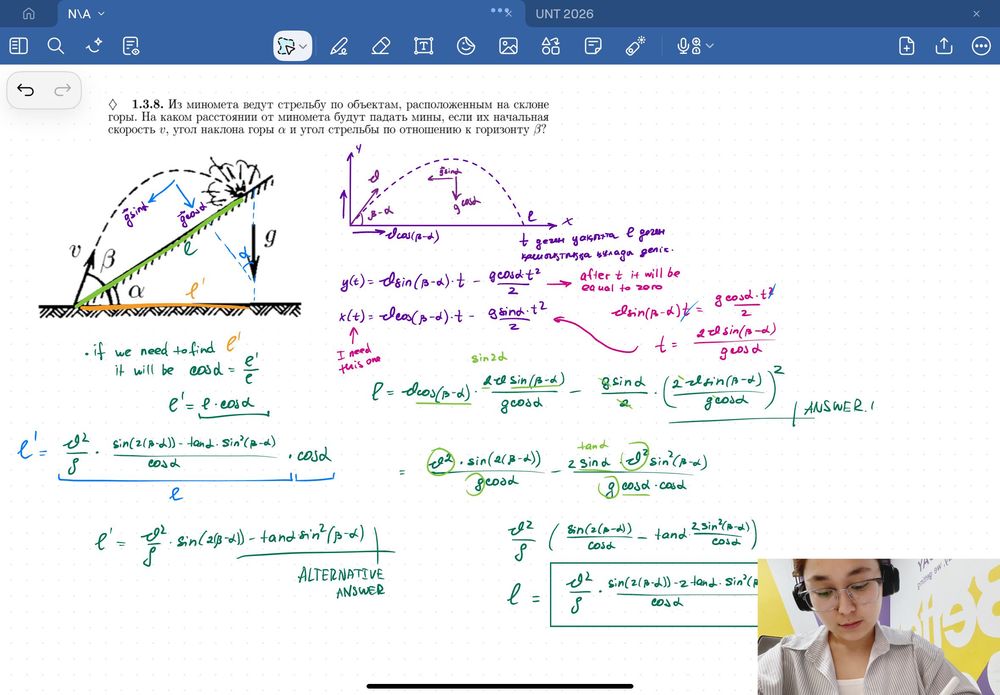 N\A
UNT 2026
◊ 1.3.8. Из миномета ведут стрельбу по объектам, расположенным на склоне
горы. На каком расстоянии от миномета будут падать мины, если их начальная
скорость v, угол наклона горы α и угол стрельбы по отношению к горизонту β?
g⃗sinα
g⃗cosα
v
β
α
ℓ
ℓ'
α
g
y
v
β-α
gsinα
gcosα
ℓ
x
vcos(β-α)
t деген уақытта ℓ деген
қашықтыққа құлады делік.
y(t) = vsin(β-α)·t - gcosαt²/2 → after t it will be
equal to zero
x(t) = vcos(β-α)·t - gsinα·t²/2
vsin(β-α)t = gcosα·t²/2
t = 2vsin(β-α)/gcosα
I need
this one
sin2α
ℓ = vcos(β-α)·2vsin(β-α)/gcosα - gsinα/2·(2vsin(β-α)/gcosα)²
ANSWER!
• if we need to find ℓ'
it will be cosα = ℓ'/ℓ
ℓ' = ℓ·cosα
ℓ' = v²/g · sin(2(β-α))-tanα·sin²(β-α)/cosα · cosα
ℓ
tanα
= v²·sin(2(β-α))/gcosα - 2sinα·v²sin²(β-α)/gcosα·cosα
ℓ' = v²/g · sin(2(β-α)) - tanαsin²(β-α)
ALTERNATIVE
ANSWER
v²/g (sin(2(β-α))/cosα - tanα·2sin²(β-α)/cosα)
ℓ = v²/g · sin(2(β-α))-2tanα·sin²(β/cosα